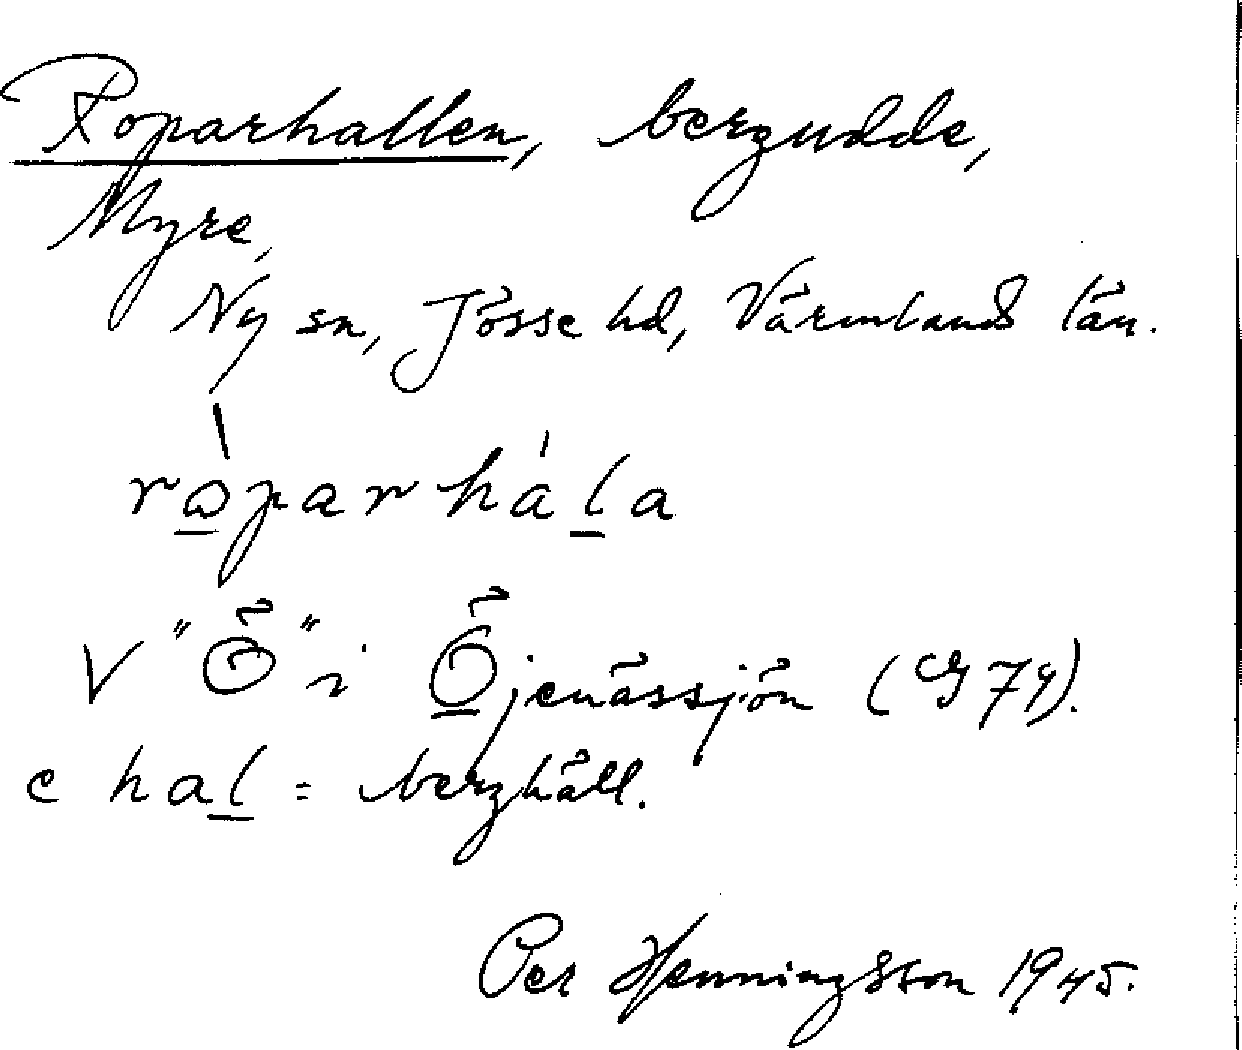 Roparhallen, bergudde,
Myre,
Ny sn, Jösse hd, Värmlands län.
ròparhála
V "Ö" i Öjenässjön (G 74).
e hal = berghäll.
Per Henningsson 1945.